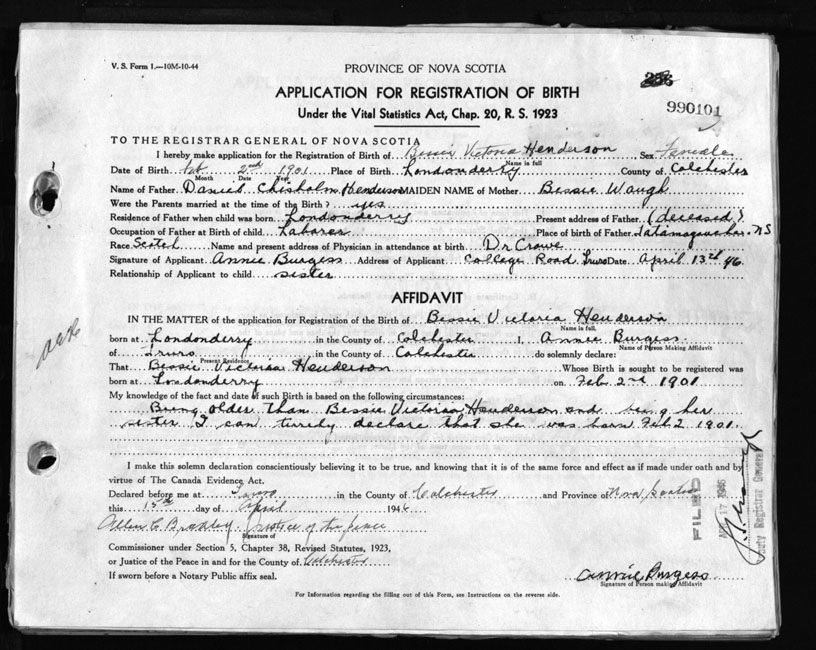 V. S. Form 1.—10M-10-44
PROVINCE OF NOVA SCOTIA
APPLICATION FOR REGISTRATION OF BIRTH
990101
Under the Vital Statistics Act, Chap. 20, R. S. 1923
TO THE REGISTRAR GENERAL OF NOVA SCOTIA
I hereby make application for the Registration of Birth of Bessie Victoria Henderson Sex Female
Name in full
Date of Birth Feb 2nd 1901 Place of Birth Londonderry County of Colchester
Month Date Year
Name of Father Daniel Chisholm Henderson MAIDEN NAME of Mother Bessie Waugh
Were the Parents married at the time of the Birth? yes
Residence of Father when child was born Londonderry Present address of Father (deceased)
Occupation of Father at Birth of child Laborer Place of birth of Father Tatamagouche N S
Race Scotch Name and present address of Physician in attendance at birth Dr Crowe
Signature of Applicant Annie Burgess Address of Applicant College Road Truro Date April 13th 46
Relationship of Applicant to child sister
AFFIDAVIT
IN THE MATTER of the application for Registration of the Birth of Bessie Victoria Henderson
Name in full.
born at Londonderry in the County of Colchester I, Annie Burgess
Name of Person Making Affidavit
of Truro in the County of Colchester do solemnly declare:
Present Residence
That Bessie Victoria Henderson Whose Birth is sought to be registered was
born at Londonderry on Feb 2nd 1901
My knowledge of the fact and date of such Birth is based on the following circumstances:
Being older than Bessie Victoria Henderson and being her
sister I can declare that she was born Feb 2 1901.
I make this solemn declaration conscientiously believing it to be true, and knowing that it is of the same force and effect as if made under oath and by
virtue of The Canada Evidence Act.
Declared before me at Truro in the County of Colchester and Province of Nova Scotia
this 13th day of April 1946
Justice of the peace
Signature of
Commissioner under Section 5, Chapter 38, Revised Statutes, 1923,
or Justice of the Peace in and for the County of Colchester
If sworn before a Notary Public affix seal.
Annie Burgess
Signature of Person making Affidavit
For Information regarding the filling out of this Form, see Instructions on the reverse side.
FILED
17 1946
Deputy Registrar General